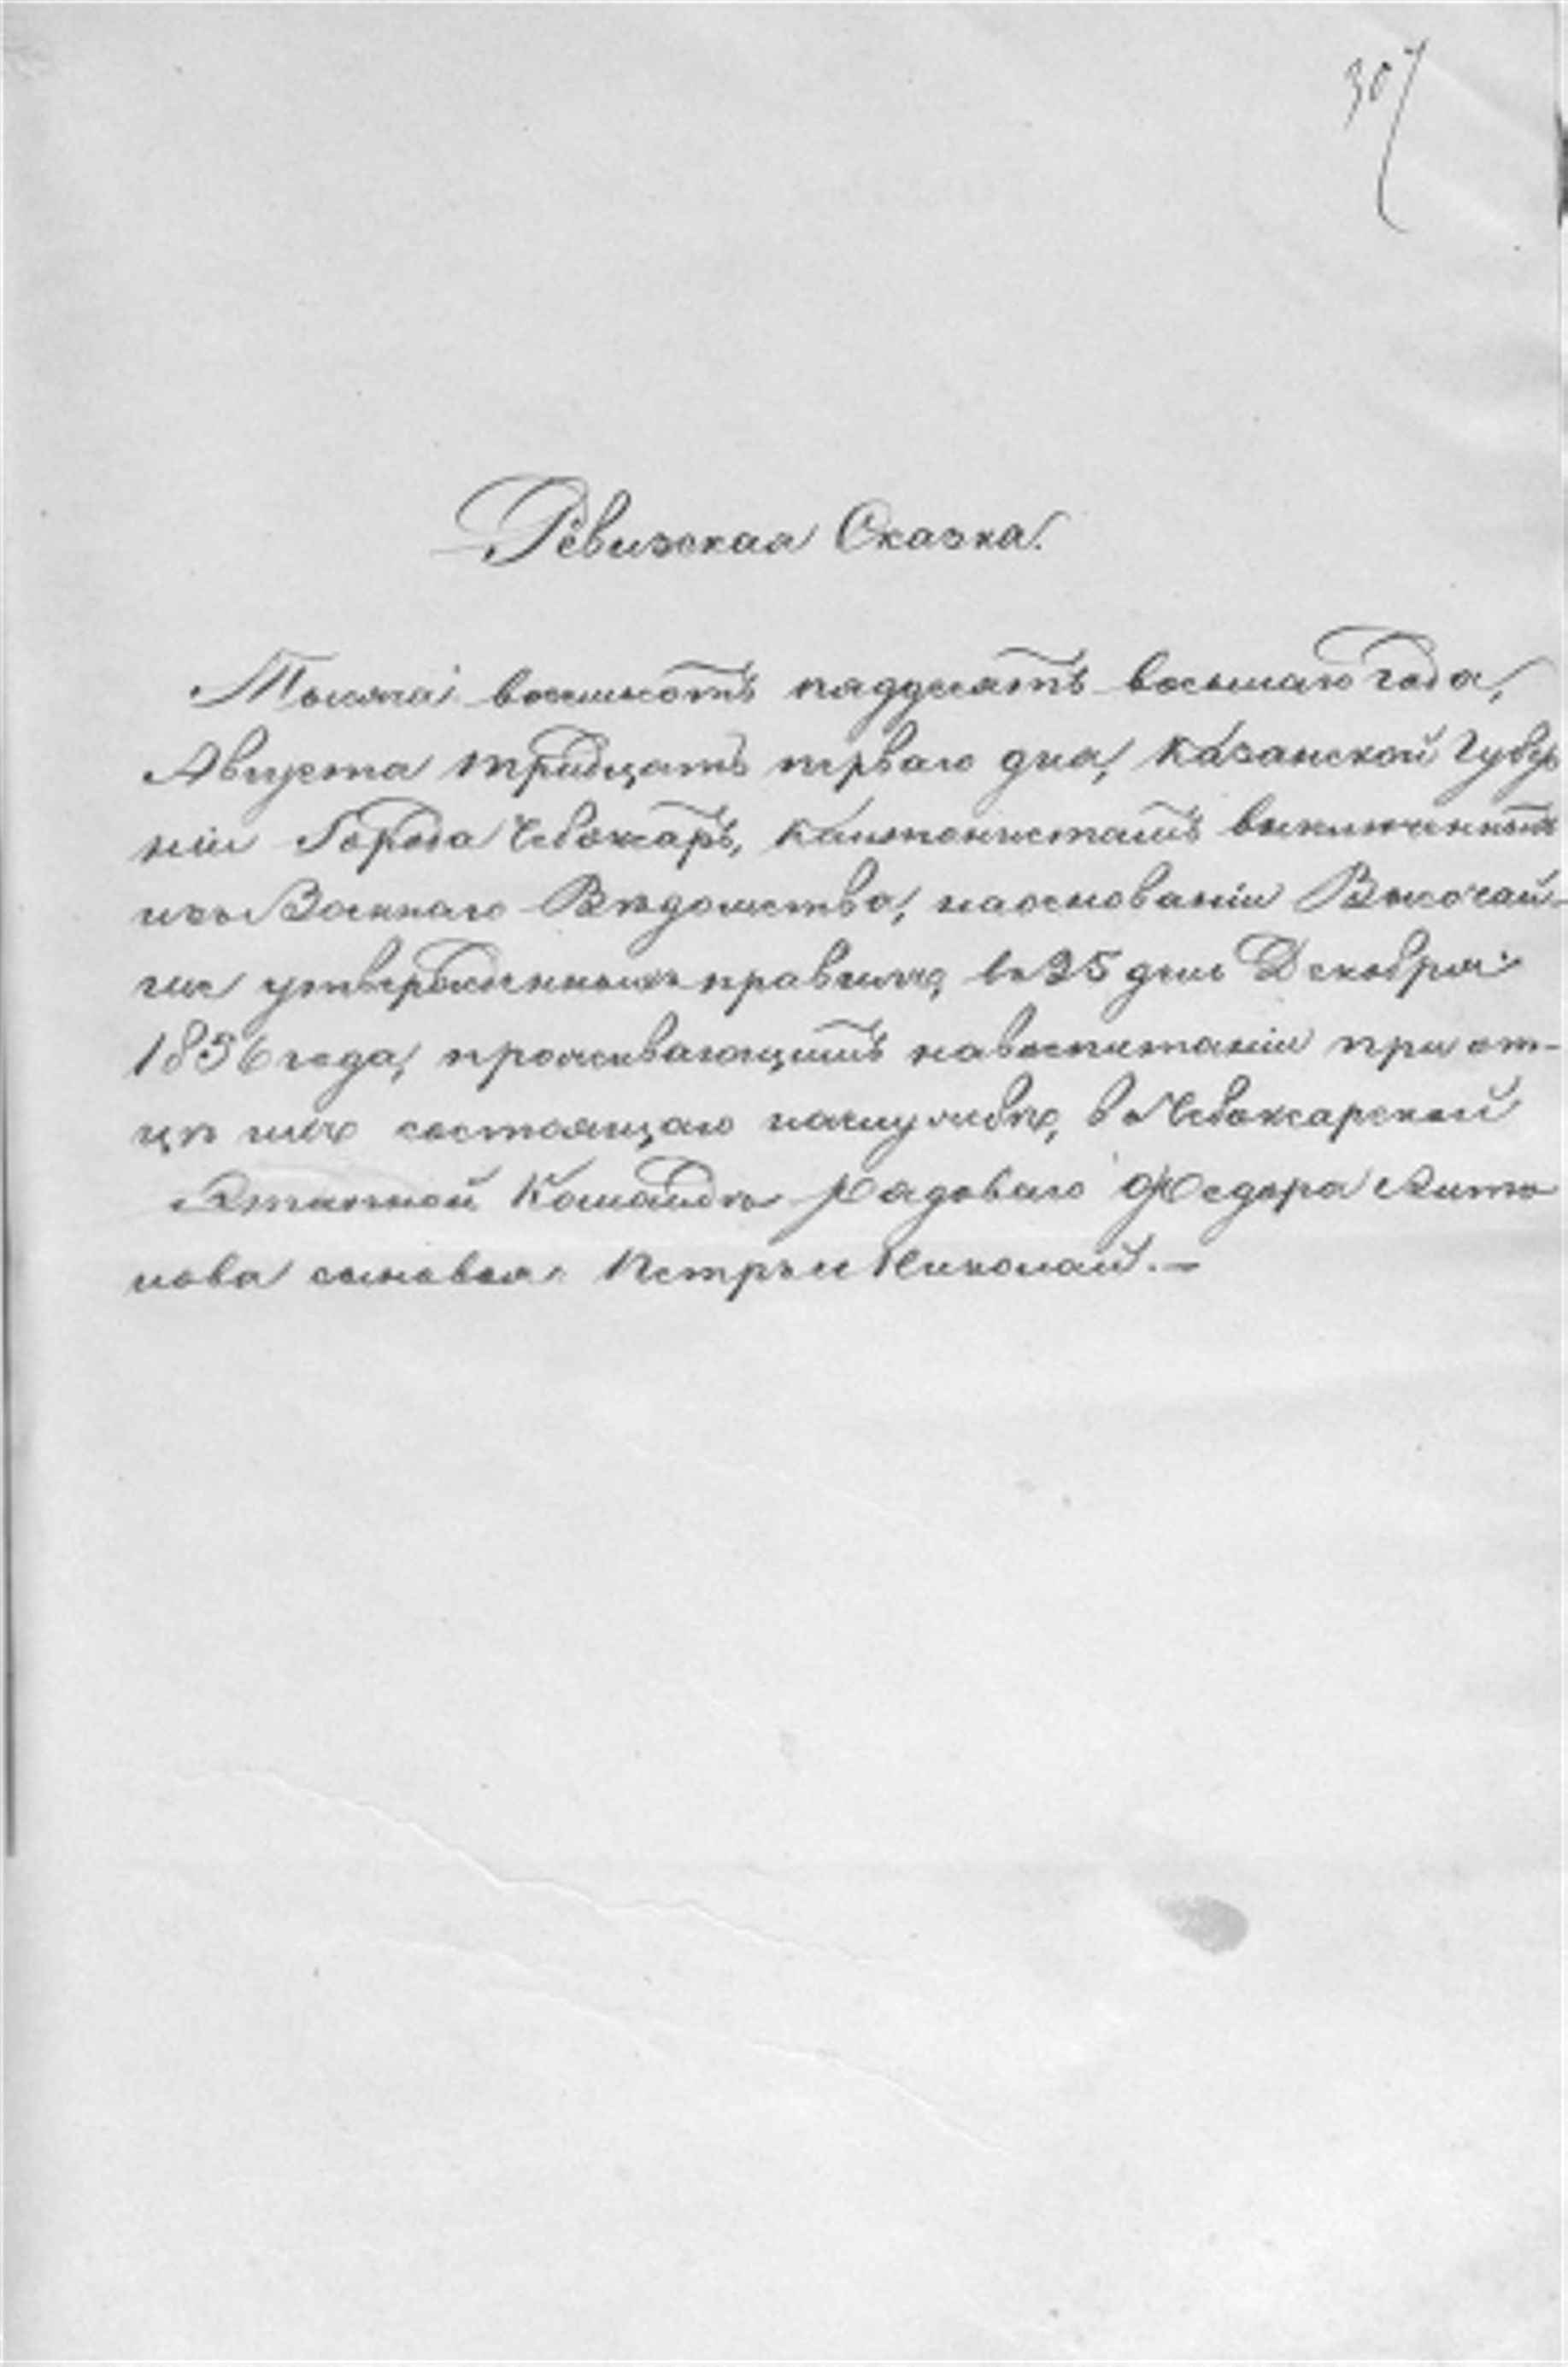 307
Ревизская Сказка.
Тысяча восемьсотъ пяддесятъ восьмаго года,
Августа тридцать перваго дня, Казанской Губер
ніи Города Чебоксаръ, кантонистамъ выключеннымъ
изъ Военнаго Вѣдомства, наоснованіи Высочай-
ше утвержденныхъ правилъ, въ 25 день Декабря
1856 года, проживающимъ навоспитаніи при от-
цѣ ихъ состоящаго наслужбѣ, въ Чебоксарской
Штатной Командѣ рядоваго Федора Анто
нова сыновья: Петръ и Николай.-